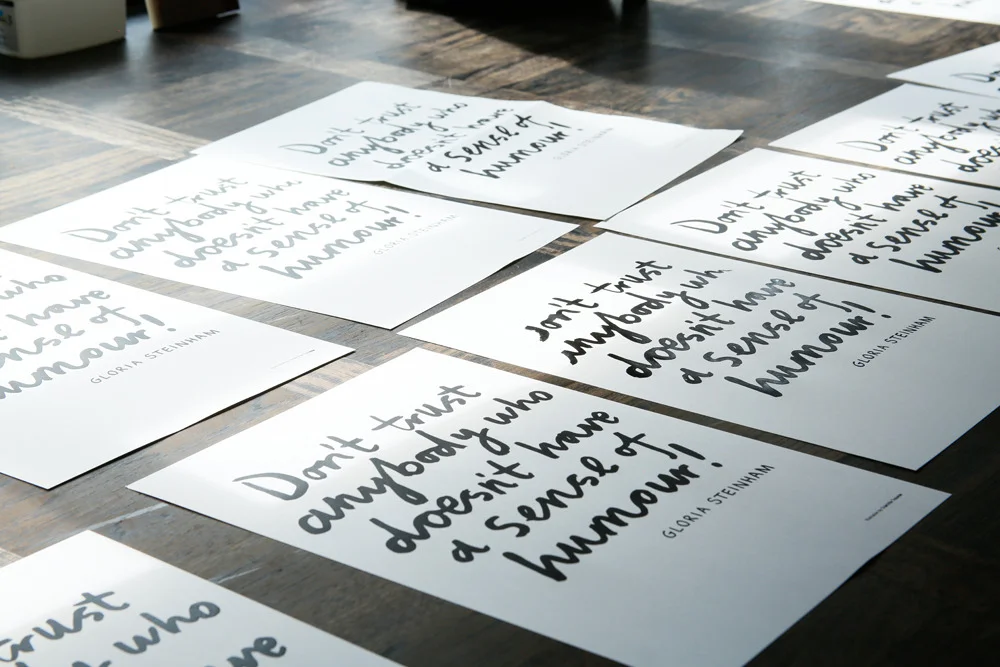 Don't trust
anybody who
doesn't have
a sense of
humour!
GLORIA STEINHAM
Don't trust
anybody who
doesn't have
a sense of
humour!
GLORIA STEINHAM
Don't trust
anybody who
doesn't have
a sense of
humour!
GLORIA STEINHAM
who
have
sense of
humour!
GLORIA STEINHAM
on't trust
anybody wh
doesn't have
a sense of
humour!
GLORIA STEINHAM
Don't trust
anybody who
doesn't have
a sense of
humour!
Don't trust
anybody
Don't trust
anybody who
doesn't have
a sense of
humour!
GLORIA STEINHAM
trust
who